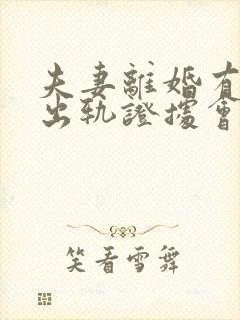 夫妻離婚有
出軌證據會
笑看雪舞